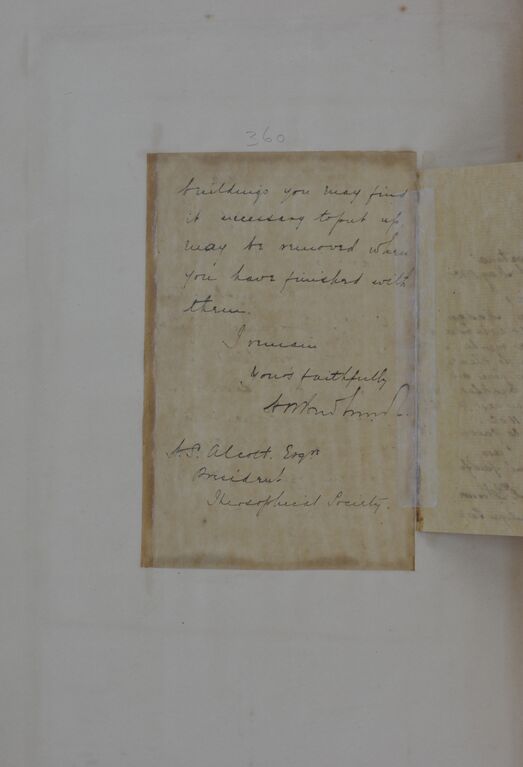 360
buildings you may find
it necessary to put up,
may be removed when
you have finished with
them.
I remain
Yours faithfully
H.S. Alcott. Esqre
President
Theosophical Society.